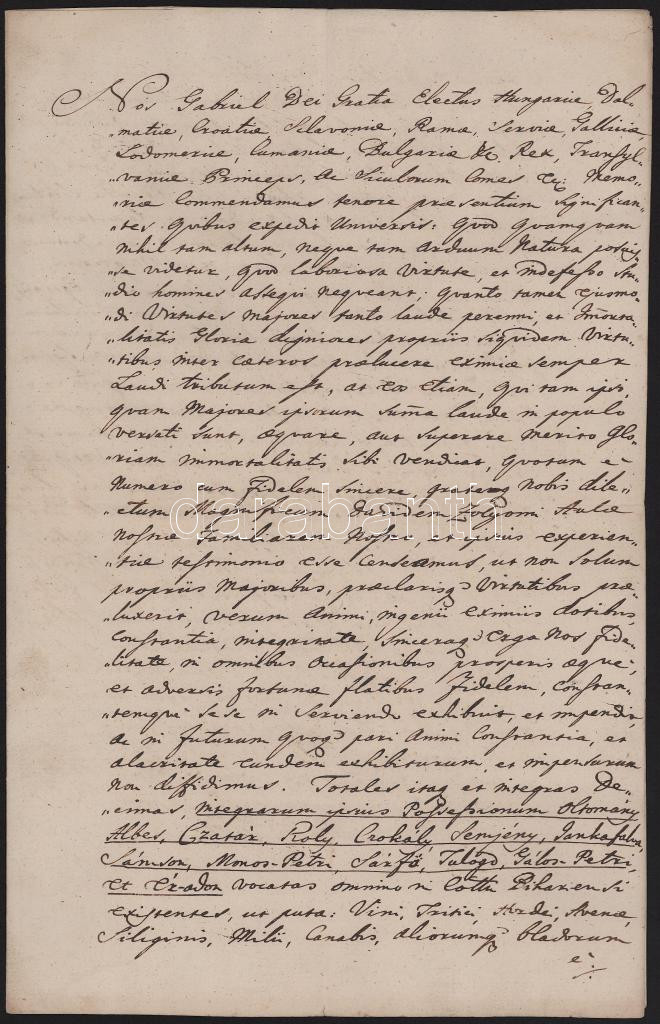 Nos Gabriel Dei Gratia Electus Hungariae, Dal„
„matiae, Croatiae, Sclavoniae, Ramae, Serviae, Galliciae
Lodomeriae, Cumaniae, Bulgariae &c. Rex, Transyl„
„vaniae Princeps, ac Siculorum Comes &c. Memo„
„riae Commendamus tenore praesentium Significan„
„tes quibus expedit Universis: Quod quamquam
nihil tam altum, neque tam arduum Natura posuis„
„se videtur, quod laboriosa virtute, et indefesso Stu„
„dio homines assequi nequeant; quanto tamen ejusmo„
„di Virtutes majores tanto laude perenni, et Immorta„
„litatis Gloria digniores propriis siquidem Virtu„
„tibus inter caeteros praelucere eximiae semper
Laudi tributum est, at eos etiam, qui tam ipsi,
quam Majores ipsorum suma laude in populo
versati sunt, aequare, aut superare merito Glo„
„riam immortalitatis sibi vendicat, quorum è
Numero cum Fidelem sincere, grateq nobis dile„
„ctum Magnificum Davidem Zolyomi Aulae
Nostrae Familiarem Nostrae, et ipsius experien„
„tiae testimonio esse Censeamus, ut non solum
propriis Majoribus, praeclarisq Virtutibus prae„
„luxerit, verum animi, ingenii eximiis dotibus,
Constantia, integritate, sinceraq erga Nos fide„
„litate, in omnibus occasionibus prosperis aeque,
et adversis fortunae flatibus Fidelem, Constan„
„temque sese in serviendo exhibuit, et impendit,
ac in futurum quoq pari Animi Constantia, et
alacritate eundem exhibiturum, et impensurum
non diffidimus. Totales itaq et integras De„
„cimas, integrarum ipsius Possessionum Ottomány
Albes, Czatár, Roly, Csokály, Semjény, Jankafalva,
Sámson, Monos-Petri, Sárfő, Tulogd, Gálos-Petri,
et Ér-adon vocatas omnino in Cottu Bihariensi
existentes, ut puta: Vini, Tritici, Hordei, Avenae,
Siliginis, Milii, Canabis, aliorumq bladorum
è ∙/.
darabanth